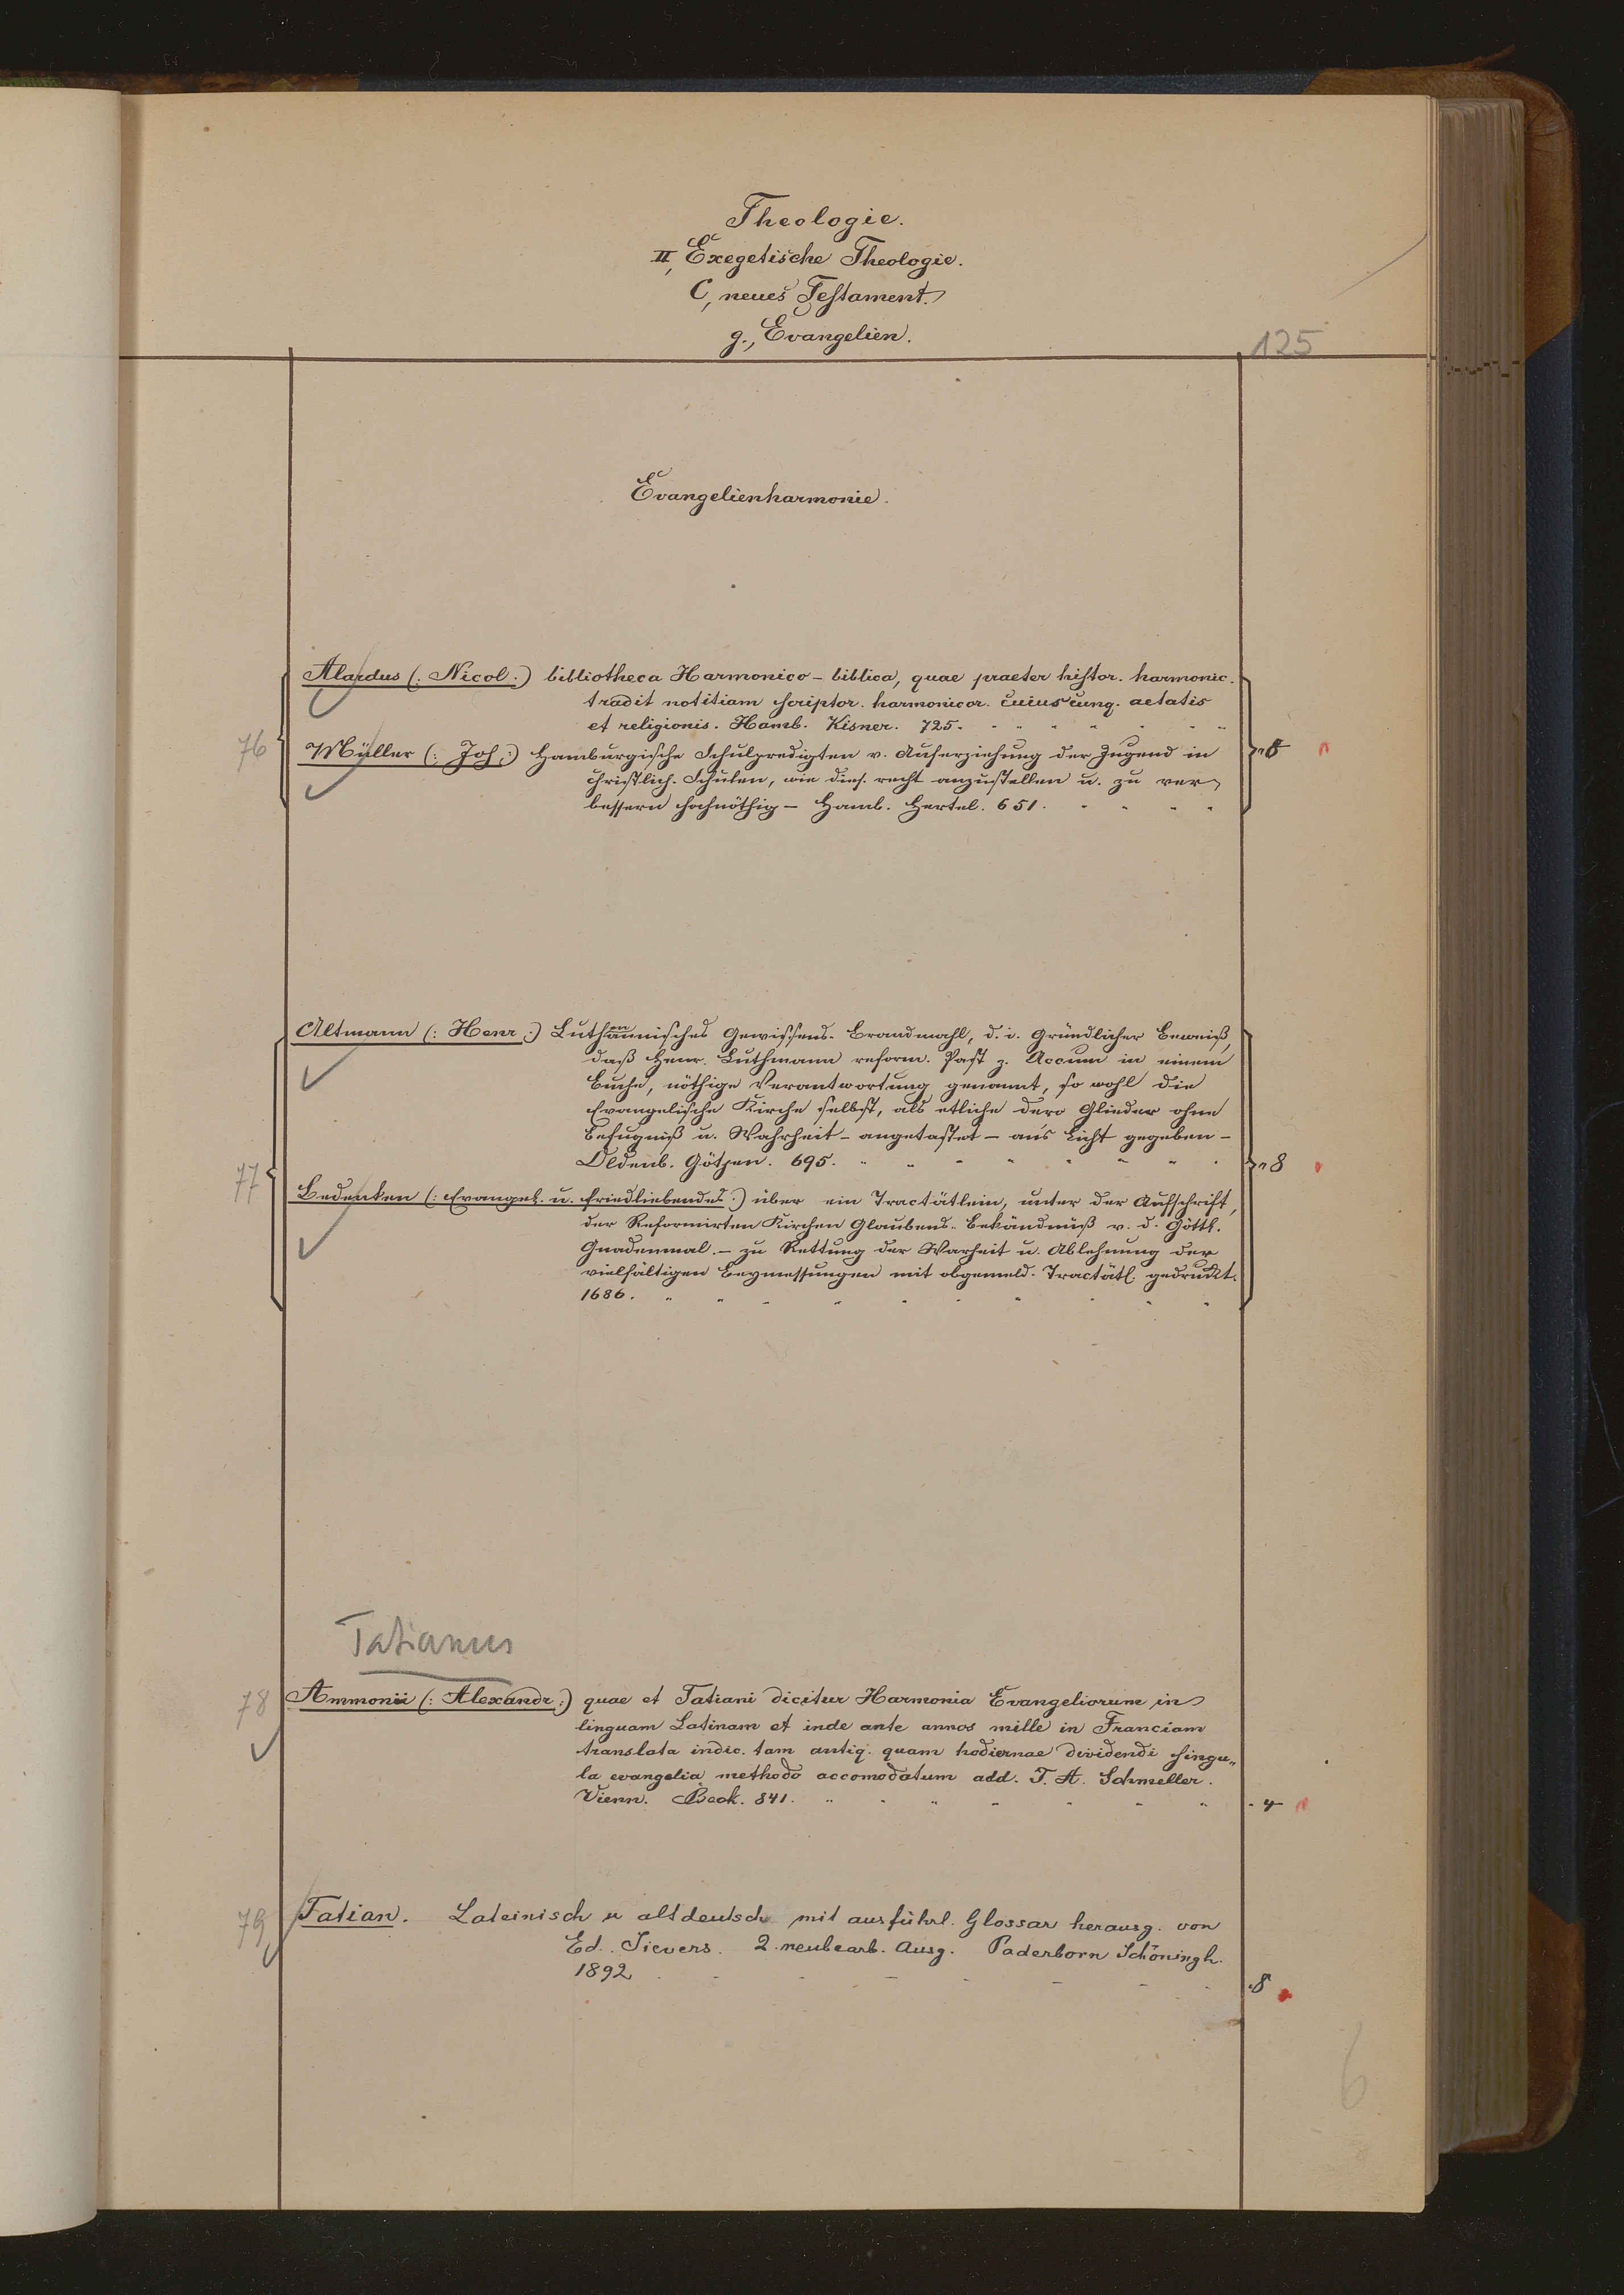 Theologie.
II, Exegetische Theologie.
C, neues Testament.
g., Evangelien.
125
Evangelienharmonie.
Alardus (: Nicol :) bibliotheca Harmonico-biblica, quae praeter histor. harmonic.
tradit notitiam scriptor. harmonicor. cuiuscunq. aetatis
et religionis. Hamb. Kisner. 725.
76 Müller (: Joh :) Hamburgische Schulpredigten v. Auferziehung der Jugend in
christlich. Schulen, wie dies. recht anzustellen u. zu ver
bessern hochnöthig – Hamb. Hertel. 651.
Altmann (: Henr :) Luthmannisches Gewissens-Brandmahl, d. i. Gründlicher Beweiß,
daß Henr. Luthmann reform. Past z. Accum in einem
Buche, nöthige Verantwortung genannt, so wohl die
Evangelische Kirche selbst, als etliche dero Glieder ohne
Befugniß u. Wahrheit – angetastet – ans Licht gegeben –
Oldenb. Götzen. 695. " 8
77
Bedenken (: Evangel. u. friedliebendes :) über ein Tractätlein, unter der Aufschrift,
der Reformirten Kirchen Glaubens-Bekändnüß v. d. Göttl.
Gnadenwal. – zu Rettung der Warheit u. Ablehnung der
vielfältigen Beymessungen mit obgemeld. Tractätl. gedruckt.
1686.
Tatianus
78 Ammonii (: Alexandr :) quae et Tatiani dicitur Harmonia Evangeliorum in
linguam Latinam et inde ante annos mille in Franciam
translata indic. tam antiq. quam hodiernae dividendi singu„
la evangelia methodo accomodatum add. T. A. Schmeller.
Vienn. Beck. 841. 4
79 Tatian. Lateinisch u altdeutsch mit ausführl. Glossar herausg. von
Ed. Sievers. 2. neubearb. Ausg. Paderborn Schöningh.
1892
8
6